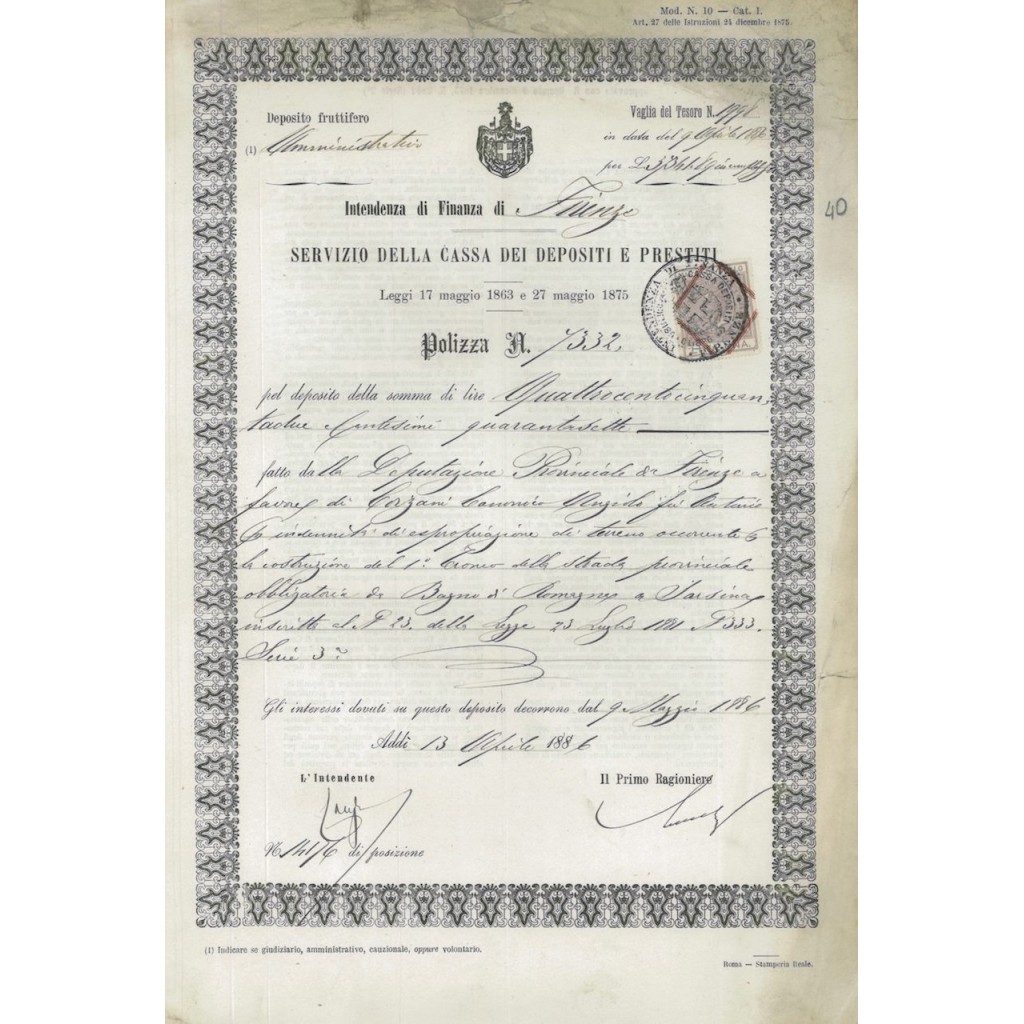 Mod. N. 10 — Cat. I.
Art. 27 delle Istruzioni 24 dicembre 1875.
Deposito fruttifero
(1) Amministrativo
Vaglia del Tesoro N.
in data del 9 Aprile
per L.
40
Intendenza di Finanza di Firenze
SERVIZIO DELLA CASSA DEI DEPOSITI E PRESTITI
Leggi 17 maggio 1863 e 27 maggio 1875
INTENDENZA DI FINANZA FIRENZE
CASSA DEPOSITI
Polizza N. 7332
pel deposito della somma di lire Quattrocentocinquan
tadue Centesimi quarantasette
fatto dalla Deputazione Provinciale di Firenze a
favore di Corzani Canonico Angiolo fu Antonio
indennità di espropriazione di terreno occorrente
la costruzione del 1° Tronco della strada provinciale
obbligatoria da Bagno di Romagna a Sarsina
inscritta al N° 23. della Legge 23 Luglio 1881 N° 333.
Serie 3ª
Gli interessi dovuti su questo deposito decorrono dal 9 Maggio 1886
Addì 13 Aprile 1886
L'Intendente
Il Primo Ragioniere
N° di posizione
(1) Indicare se giudiziario, amministrativo, cauzionale, oppure volontario.
Roma — Stamperia Reale.